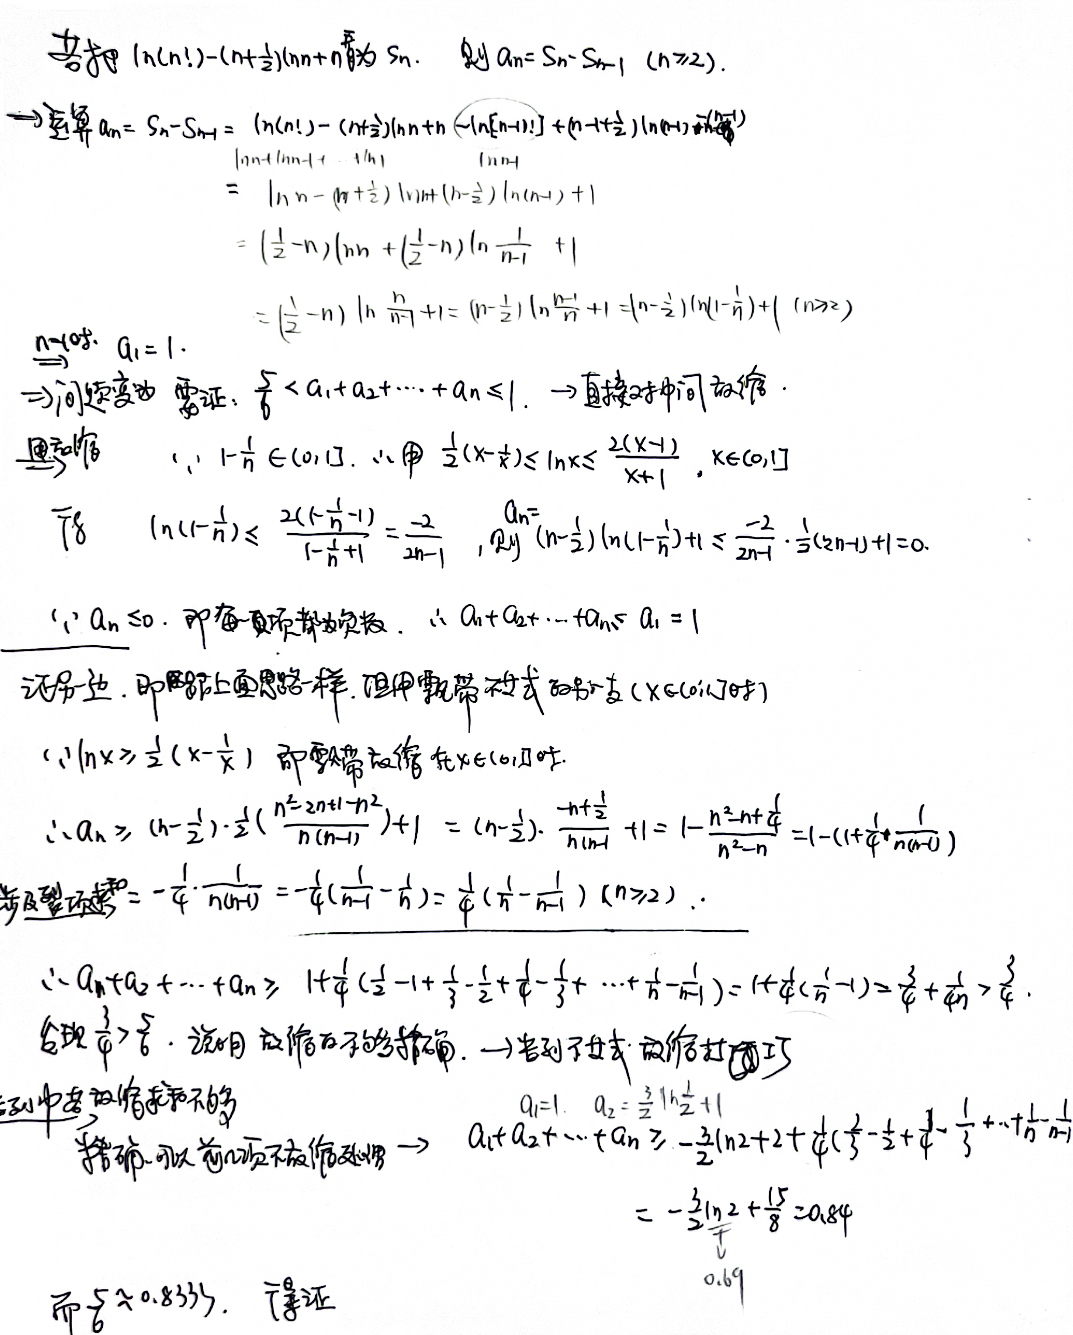 若把 ln(n!)-(n+½)lnn+n 看为 Sn. 则 an=Sn-Sn-1 (n≥2).
→运算 an=Sn-Sn-1= ln(n!)-(n+½)lnn+n -ln[(n-1)!]+(n-1+½)ln(n-1)-(n-1)
lnn+lnn-1+...+ln1 lnn-1
= lnn-(n+½)lnn+(n-½)ln(n-1)+1
=(½-n)lnn+(½-n)ln 1/(n-1) +1
=(½-n)ln n/(n-1) +1=(n-½)ln (n-1)/n +1=(n-½)ln(1-1/n)+1 (n≥2)
n=1时. a1=1.
⇒问题变为 需证: 5/6<a1+a2+……+an≤1. →直接对中间放缩.
∵ 1-1/n∈(0,1]. ∴由 ½(x-1/x)≤lnx≤ 2(x-1)/(x+1), x∈(0,1]
ln(1-1/n)≤ 2(1-1/n-1)/(1-1/n+1) = -2/(2n-1), 则 an=(n-½)ln(1-1/n)+1≤ -2/(2n-1)·½(2n-1)+1=0.
∵an≤0. 即每一项都为负数. ∴a1+a2+…+an≤a1=1
证另一边. 即跟上面思路一样. 但用飘带不等式的另一支(x∈(0,1]时)
∵lnx≥½(x-1/x) 即飘带放缩在x∈(0,1]时.
∴an≥(n-½)·½( (n²-2n+1-n²)/(n(n-1)) )+1 =(n-½)· (-n+½)/(n(n-1)) +1=1- (n²-n+¼)/(n²-n) =1-(1+¼·1/(n(n-1)))
涉及裂项求和= -¼·1/(n(n-1)) = -¼(1/(n-1)-1/n)=¼(1/n-1/(n-1)) (n≥2).
∴a1+a2+…+an≥ 1+¼(½-1+1/3-½+¼-1/3+…+1/n-1/(n-1))=1+¼(1/n-1)=¾+1/(4n)>¾.
发现 ¾>5/6. 说明放缩的不够精确. →考到不等式放缩技巧
若放缩求和不够
精确. 可以前几项不放缩处理 →
a1=1. a2=3/2 ln½+1
a1+a2+…+an≥ -3/2 ln2+2+¼(1/3-½+¼-1/3+…+1/n-1/(n-1)
= -3/2 ln2+15/8=0.84
0.69
而 5/6≈0.8333. 得证